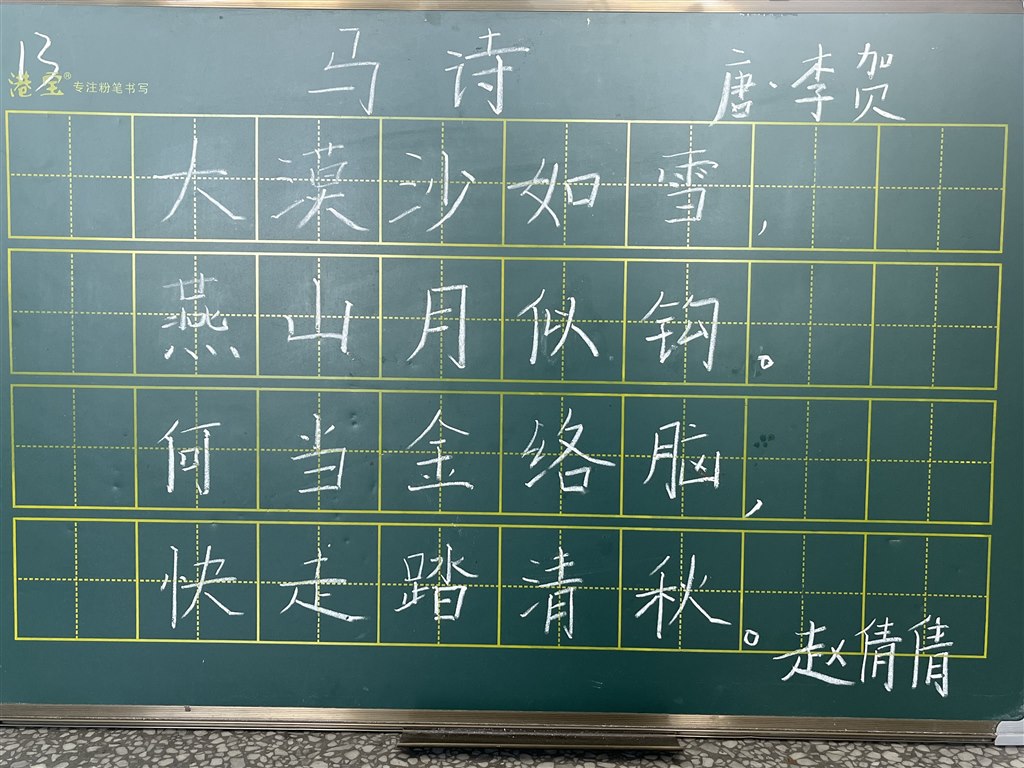 13 马诗 唐·李贺
港宝® 专注粉笔书写
大漠沙如雪，
燕山月似钩。
何当金络脑，
快走踏清秋。
赵倩倩